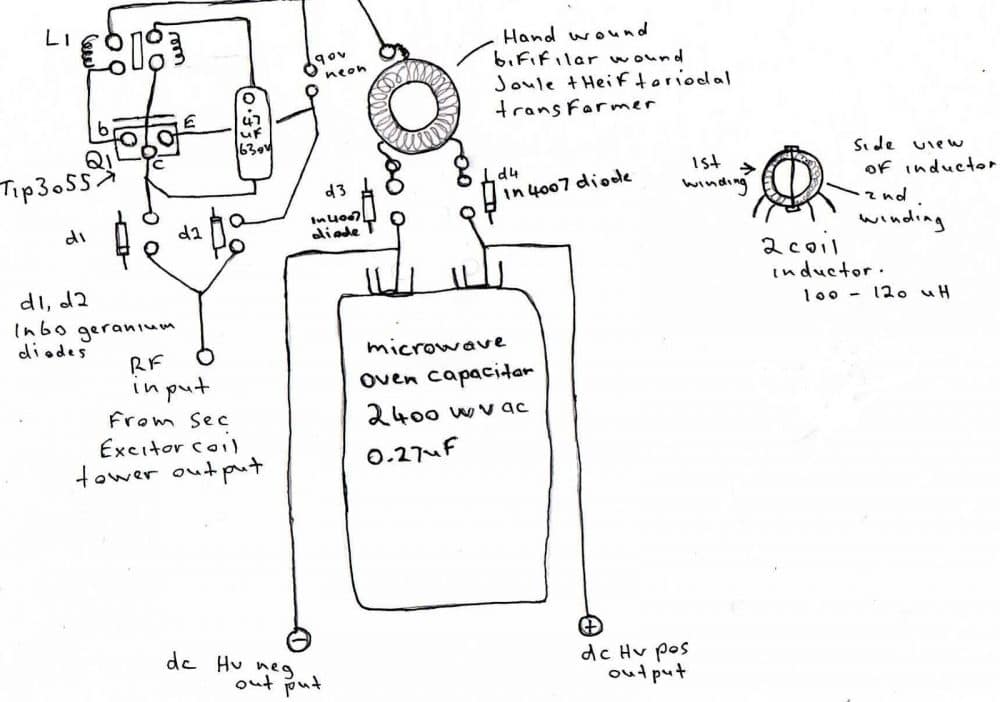 L1
90v
neon
Hand wound
bififilar wound
Joule theif toriodal
transformer
.47
uF
630v
b
E
c
Q1
Tip3055
d1
d2
d3
1n4007
diode
d4
1n4007 diode
1st
winding
Side view
of inductor
2nd
winding
2 coil
inductor.
100 - 120 uH
d1, d2
1n60 geranium
diodes
RF
input
From Sec
Excitor coil
tower output
microwave
oven capacitor
2400 wvac
0.27uF
-
dc Hv neg
output
+
dc Hv pos
output